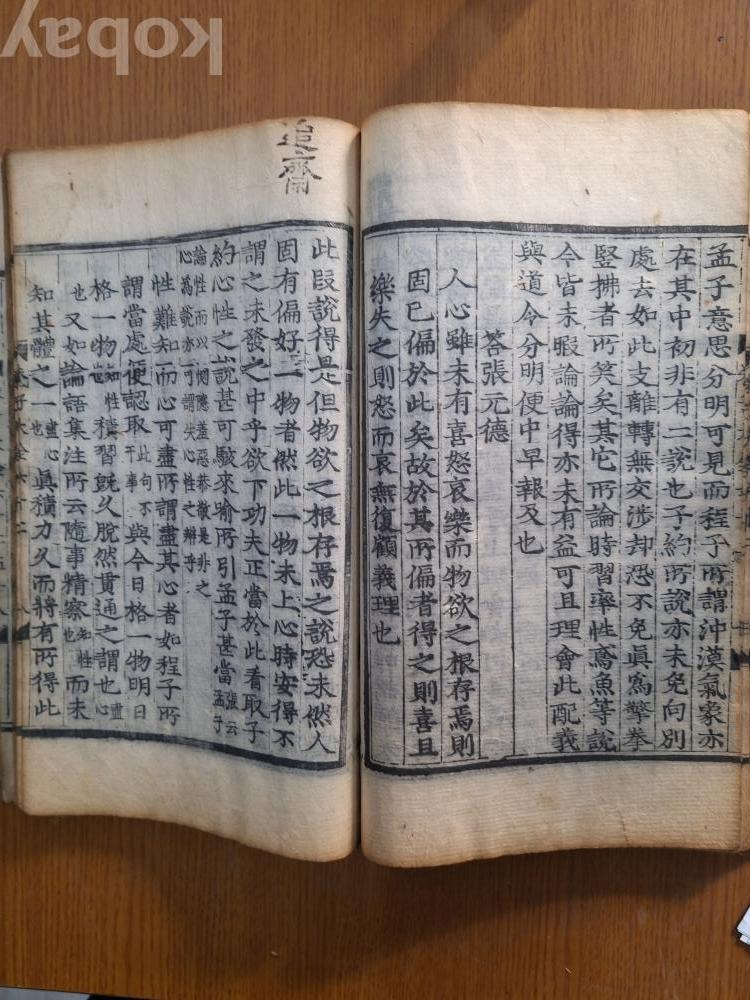 kobay
孟子意思分明可見而程子所謂沖漠氣象亦
在其中初非有二說也子約所說亦未免向別
處去如此支離轉無交涉却恐不免眞爲擎拳
竪拂者所笑矣其它所論時習率性鳶魚等說
今皆未暇論論得亦未有益可且理會此配義
與道令分明便中早報及也
答張元德
人心雖未有喜怒哀樂而物欲之根存焉則
固已偏於此矣故於其所偏者得之則喜且
樂失之則怒而哀無復顧義理也
追齋
此段說得是但物欲之根存焉之說恐未然人
固有偏好一物者然此一物未上心時安得不
謂之未發之中乎欲下功夫正當於此看取子
約心性之說甚可駭來喻所引孟子甚當張云孟子
論性而以惻隱羞惡恭敬是非之
心爲說亦可謂失心性之辨乎
性難知而心可盡所謂盡其心者如程子所
謂當處便認取此句不干事與今日格一物明日
格一物知性也積習旣久脫然貫通之謂也盡心
也又如論語集注所云隨事精察知性也而未
知其體之一盡心也眞積力久而將有所得此